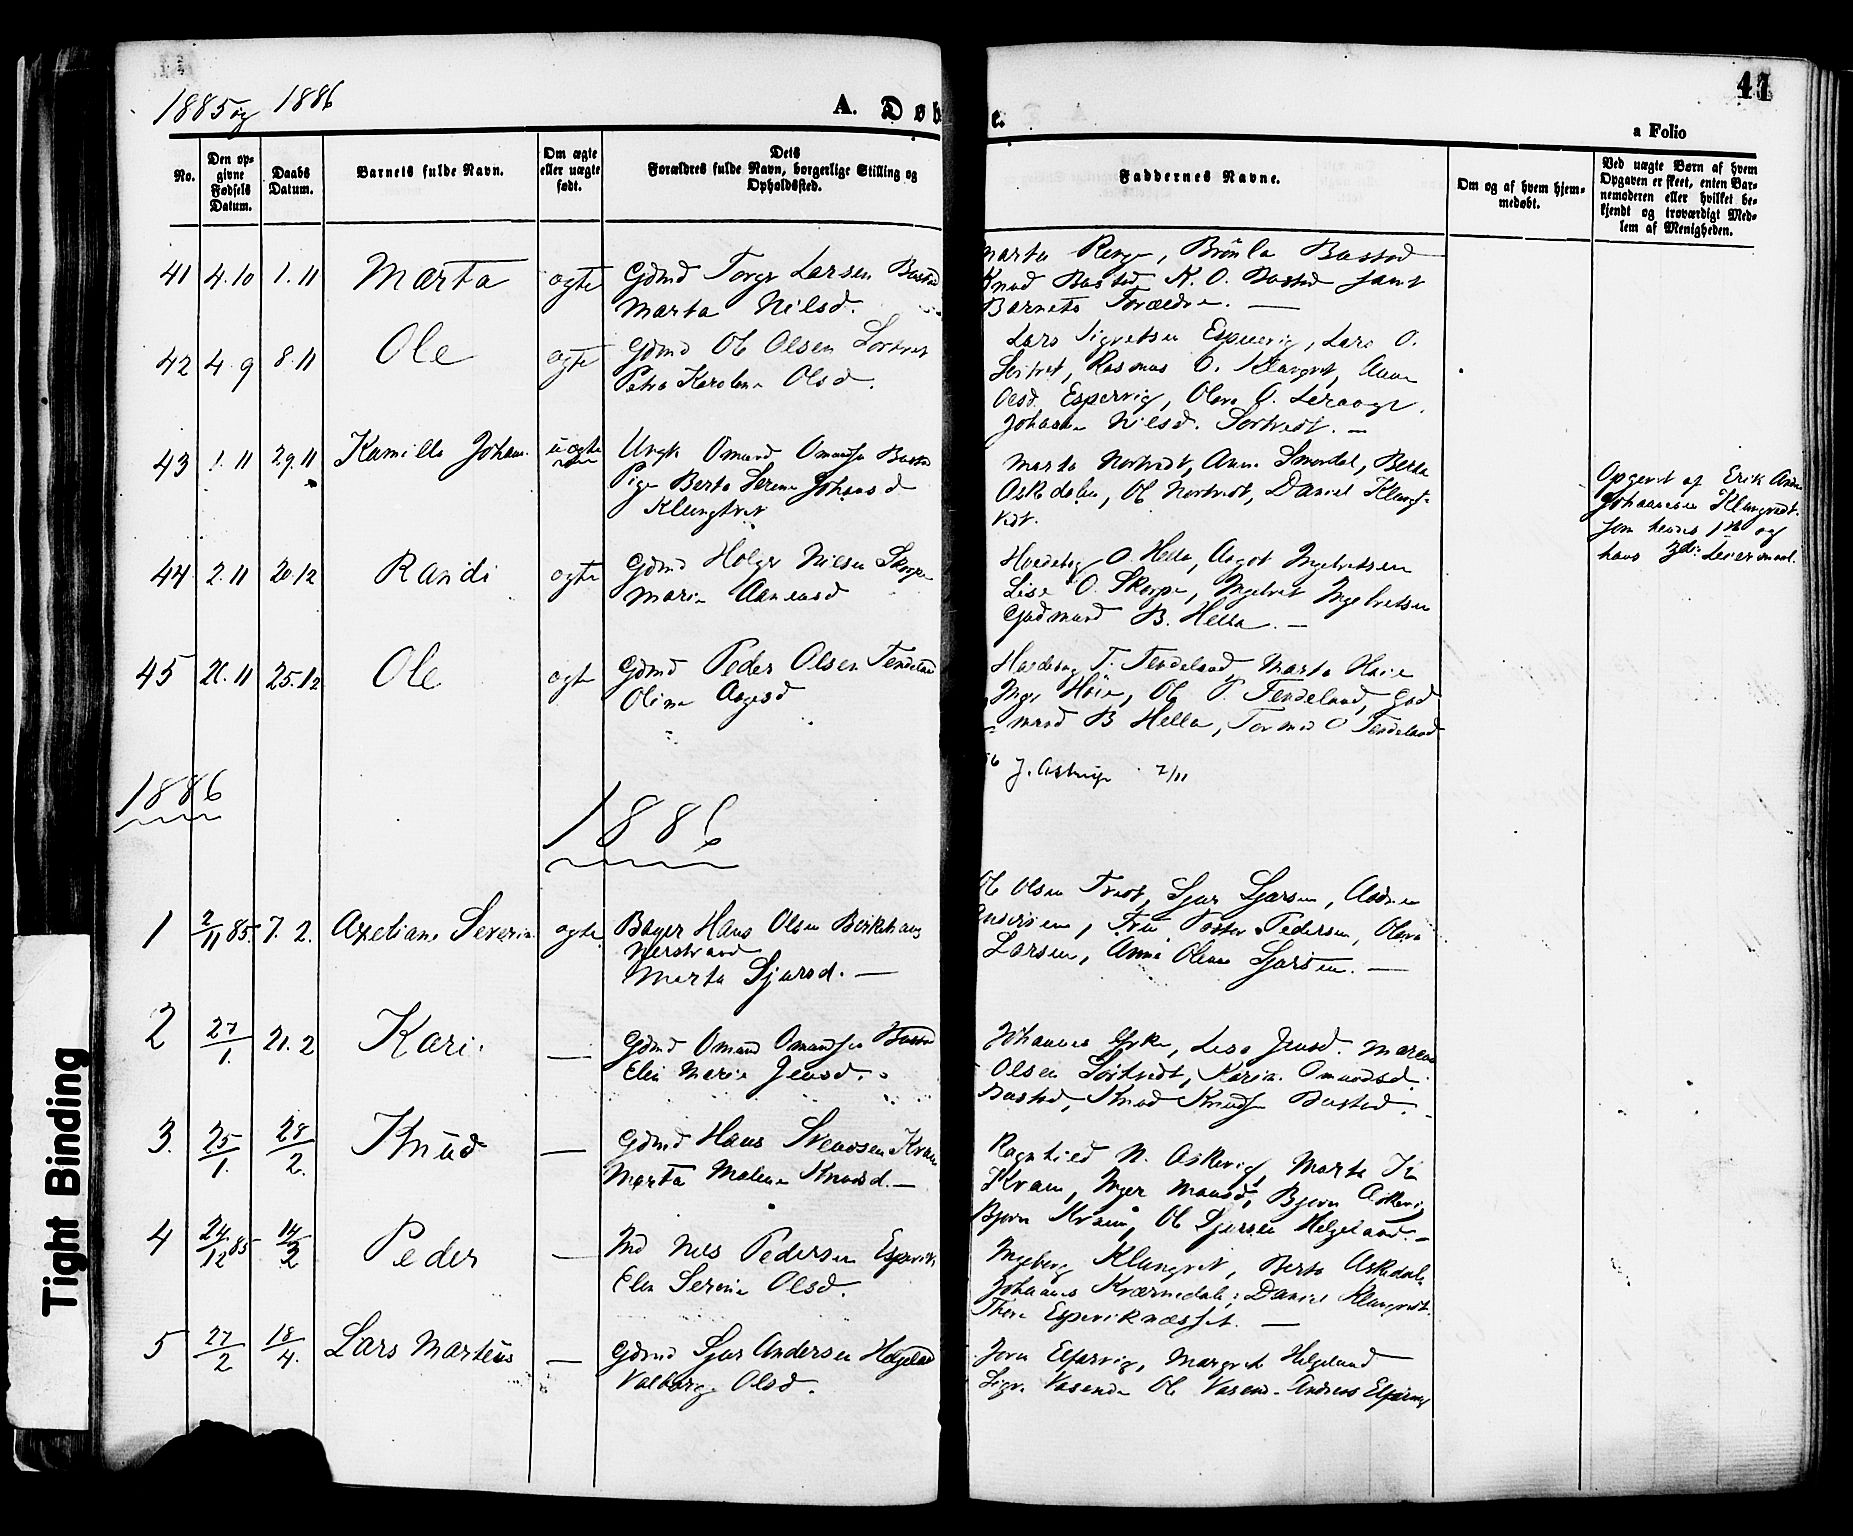 1885 og 1886
A. Døb
e.
41
a Folio
No.
Den op-
givne
Fødsels
Datum.
Daabs
Datum.
Barnets fulde Navn.
Om ægte
eller uægte
født.
Dets
Forældres fulde Navn, borgerlige Stilling og
Opholdssted.
Faddernes Navne.
Om og af hvem hjem-
medøbt.
Ved uægte Børn af hvem
Opgaven er skeet, enten Bar-
nemoderen eller hvilket be-
kjendt og troværdigt Med-
lem af Menigheden.
41 4.10 1.11 Marta ægte Gdmd Torger Larsen Bastad
Marta Nilsd.
Marta Berge, Brønla Bastad
Knud Bastad K. O. Bastad samt
Barnets Forældre. —
42 4.9 8.11 Ole ægte Gdmd Ole Olsen
Petra Karoline Olsd.
Lars Sigvertsen Espevig, Lars O.
Rasmus O. Klungvet, Anne
Olsd. Espervig, Olene O.
Johanne Nilsd. Sortvedt. —
43 1.11 29.11 Kamille Johan. uægte Ungk Omund Omundsen Bastad
Pige Berta Serine Johansd
Klungtvet
Marta Nortvedt, Anne Smørdal, Berta
Askedalen, Ole Nortvedt, Daniel Klungt-
vedt.
Opgivet af Erik
Johannesen Klungvedt.
som hendes 1ste og
hans 3die Leiermaal.
44 2.11 20.12 Randi ægte Gdmd Holger Nilsen Skorpe
Marie Aanensd
O. Hella, Asgot Ingebretsen
Lise O. Skorpe, Ingebret Ingebretsen
Gudmund B. Hella. —
45 21.11 25.12 Ole ægte Gdmd Peder Olsen Tendeland
Oline Aagesd
T. Tendeland Marta Høie
Inger Høie, Ole P. Tendeland, Gud
mund B Hella, Tormod O Tendeland
J. Astrup 7/11
1886
1886
1 2/11 85. 7. 2. Axeliane Severin. ægte Bager Hans Olsen Birkhaug
Nerstrand
Marta Sjursd. —
Ole Olsen Tvedt, Sjur Sjursen, Andreas
Andersen, Fru Pastor Pedersen, Olava
Larsen, Anne Olene Sjursen. —
2 27/1. 21. 2 Kari. — Gdmd Omund Omundsen Bastad
Elen Marie Jensd.
Johannes Lise Jensd. Maren
Olsen Sortvedt, Karin Omundsd.
Bastad, Knud Knudsen Bastad. –
3. 25/1. 28/2. Knud — Gdmd Hans Svendsen Kvam
Marta Malene Knudsd. —
Ragnhild N. Askevig, Marta K
Kvam, Inger Monsd, Bjørn Askevig
Bjørn Kvam, Ole Sjursen Helgeland. –
4 24/12 85 14/3 Peder — Ind Nils Pedersen Espevik
Elen Serine Olsd.
Ingeborg Klungvet, Berta Askedalen
Johannes Kvernedalen, Daniel Klungvedt.
There Espeviknæsset. —
5 27/2 18/4. Lars Martin — Gdmd Sjur Andersen Helgeland
Valborg Olsd.
Joren Elfarvig, Margret Helgeland
Sigr. Vasende Ole Vasend. Andreas Elfarvig
Tight Binding